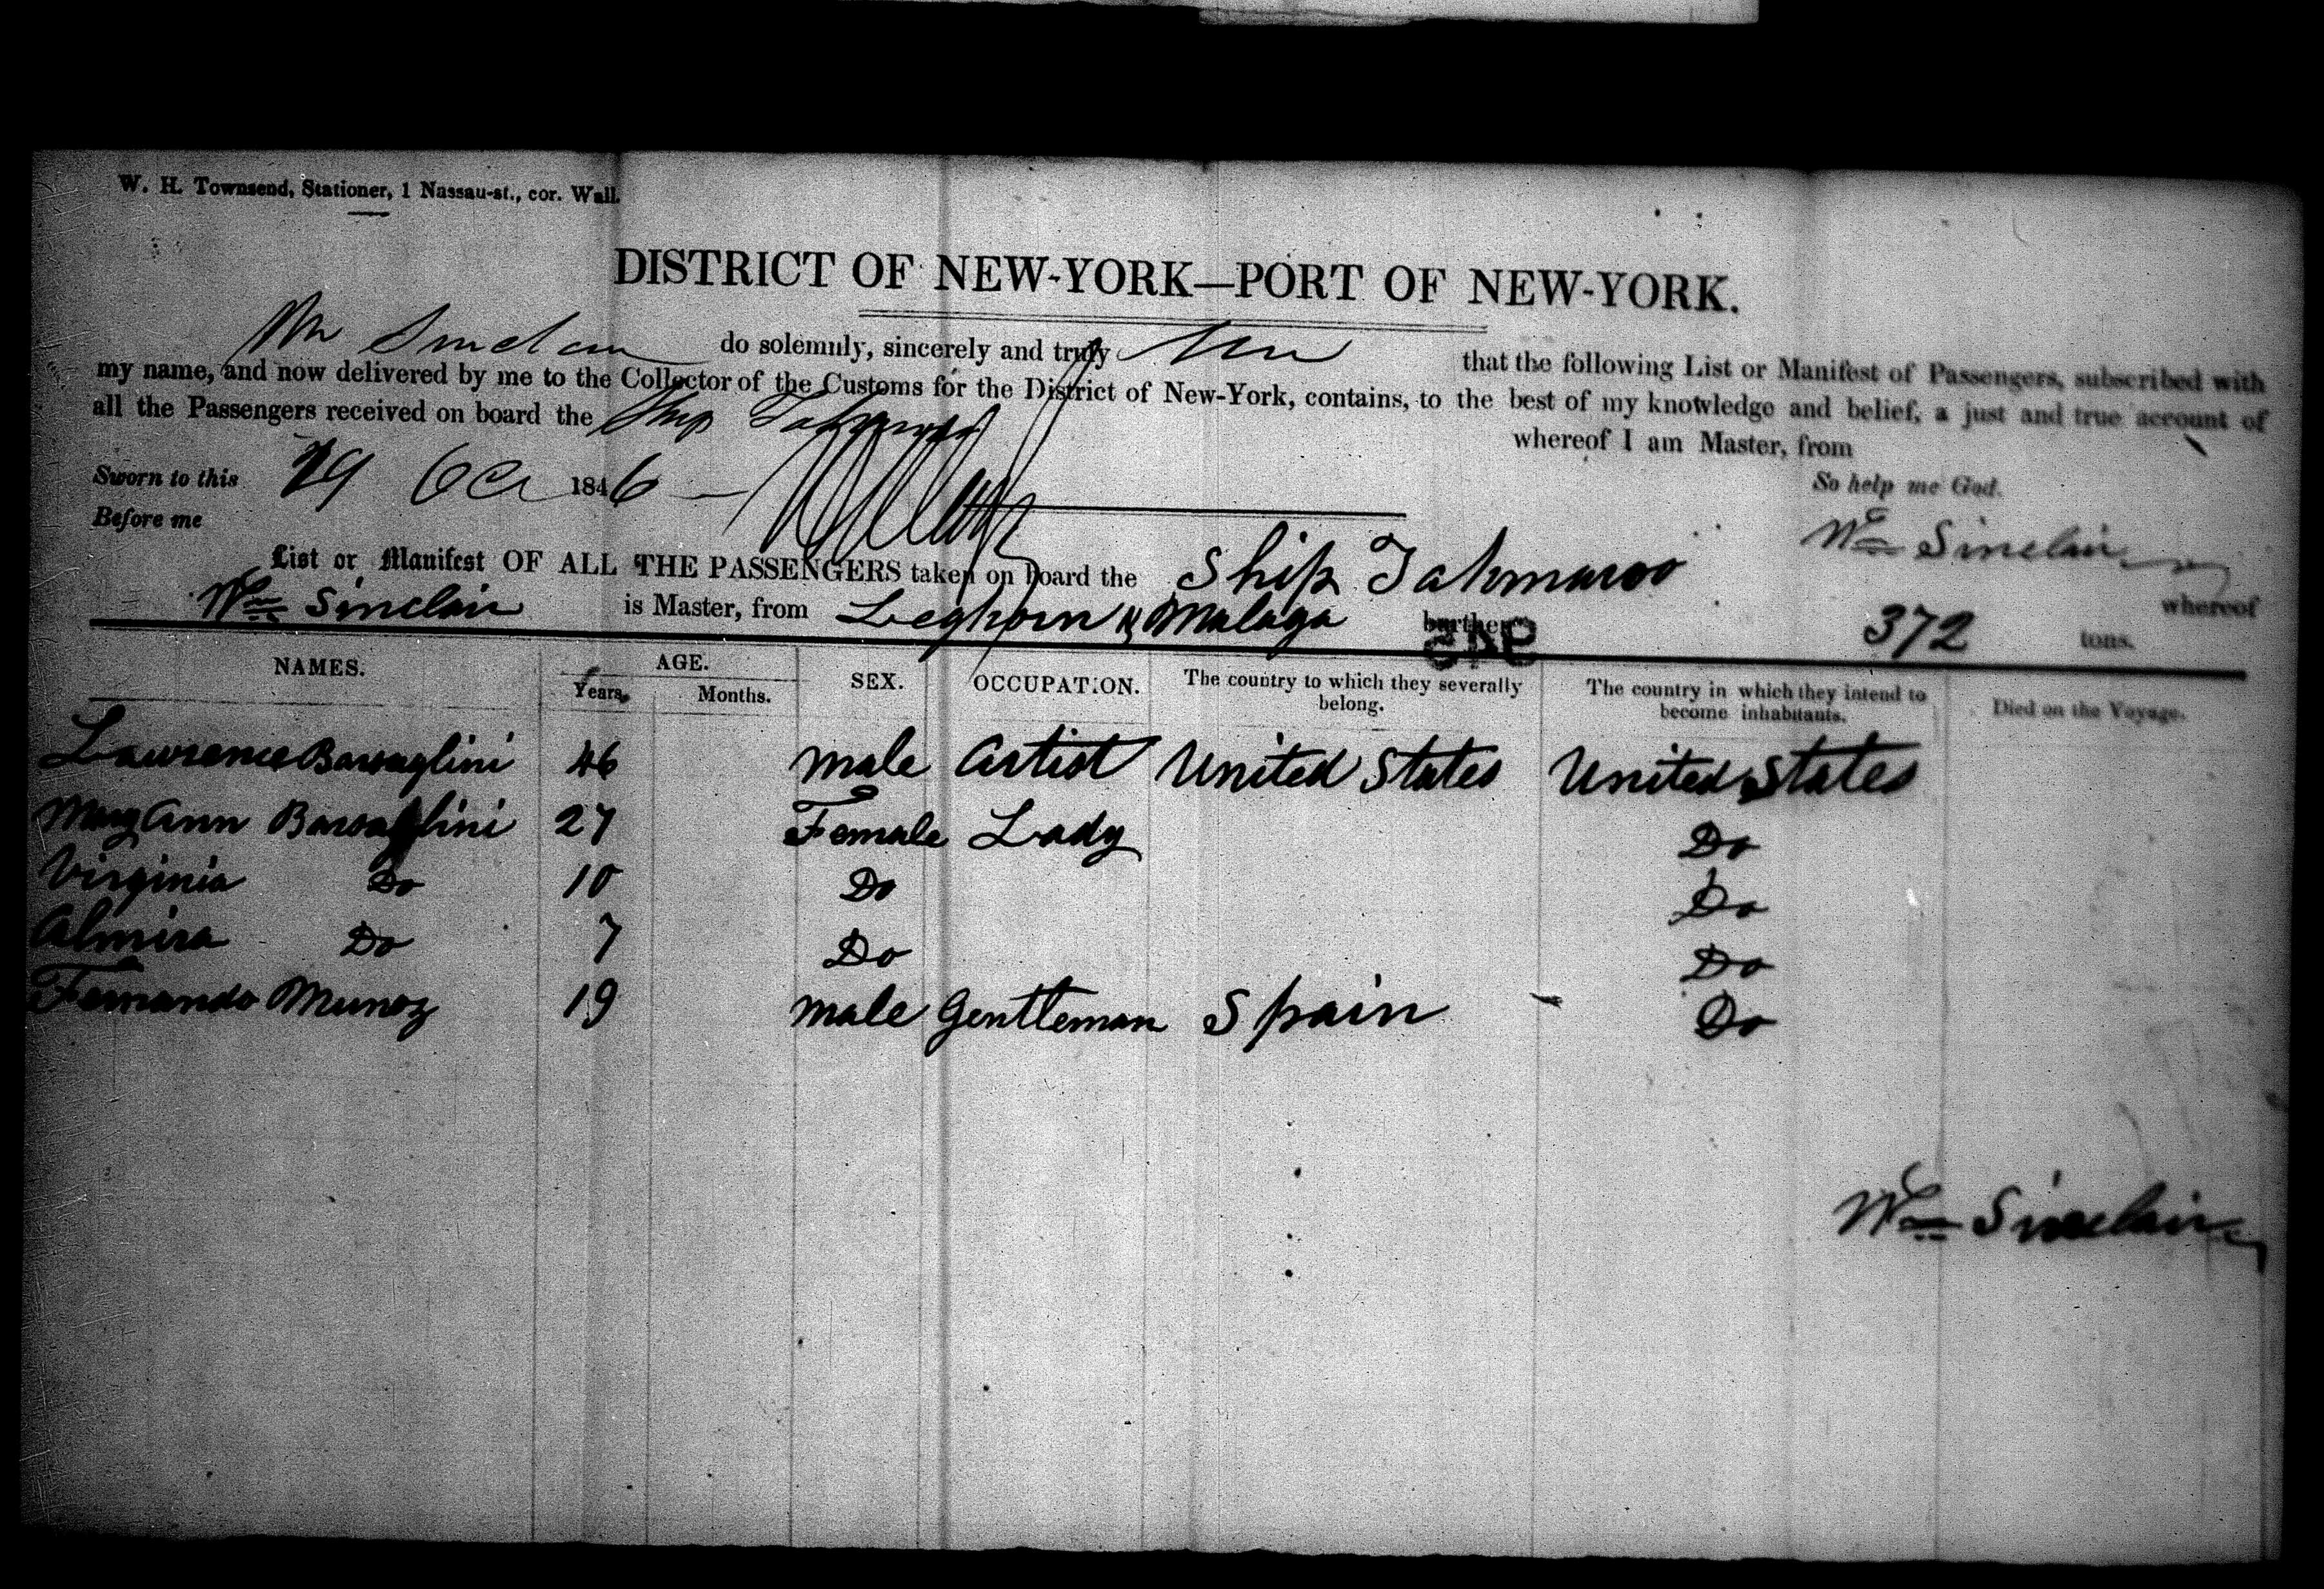 W. H. Townsend, Stationer, 1 Nassau-st., cor. Wall.
DISTRICT OF NEW-YORK—PORT OF NEW-YORK.
Wm Sinclair do solemnly, sincerely and truly that the following List or Manifest of Passengers, subscribed with
my name, and now delivered by me to the Collector of the Customs for the District of New-York, contains, to the best of my knowledge and belief, a just and true account of
all the Passengers received on board the Ship Tahmaroo whereof I am Master, from
Sworn to this 29 Oct 1846
So help me God.
Before me
Wm Sinclair
List or Manifest OF ALL THE PASSENGERS taken on board the Ship Tahmaroo whereof
Wm Sinclair is Master, from Leghorn & Malaga burthen 372 tons.
NAMES. AGE. Years. Months. SEX. OCCUPATION. The country to which they severally belong. The country in which they intend to become inhabitants. Died on the Voyage.
Lawrence Barsaglini 46 Male Artist United States United States
Mary Ann Barsaglini 27 Female Lady Do
Virginia Do 10 Do Do
Almira Do 7 Do Do
Fernando Munoz 19 Male Gentleman Spain Do
Wm Sinclair